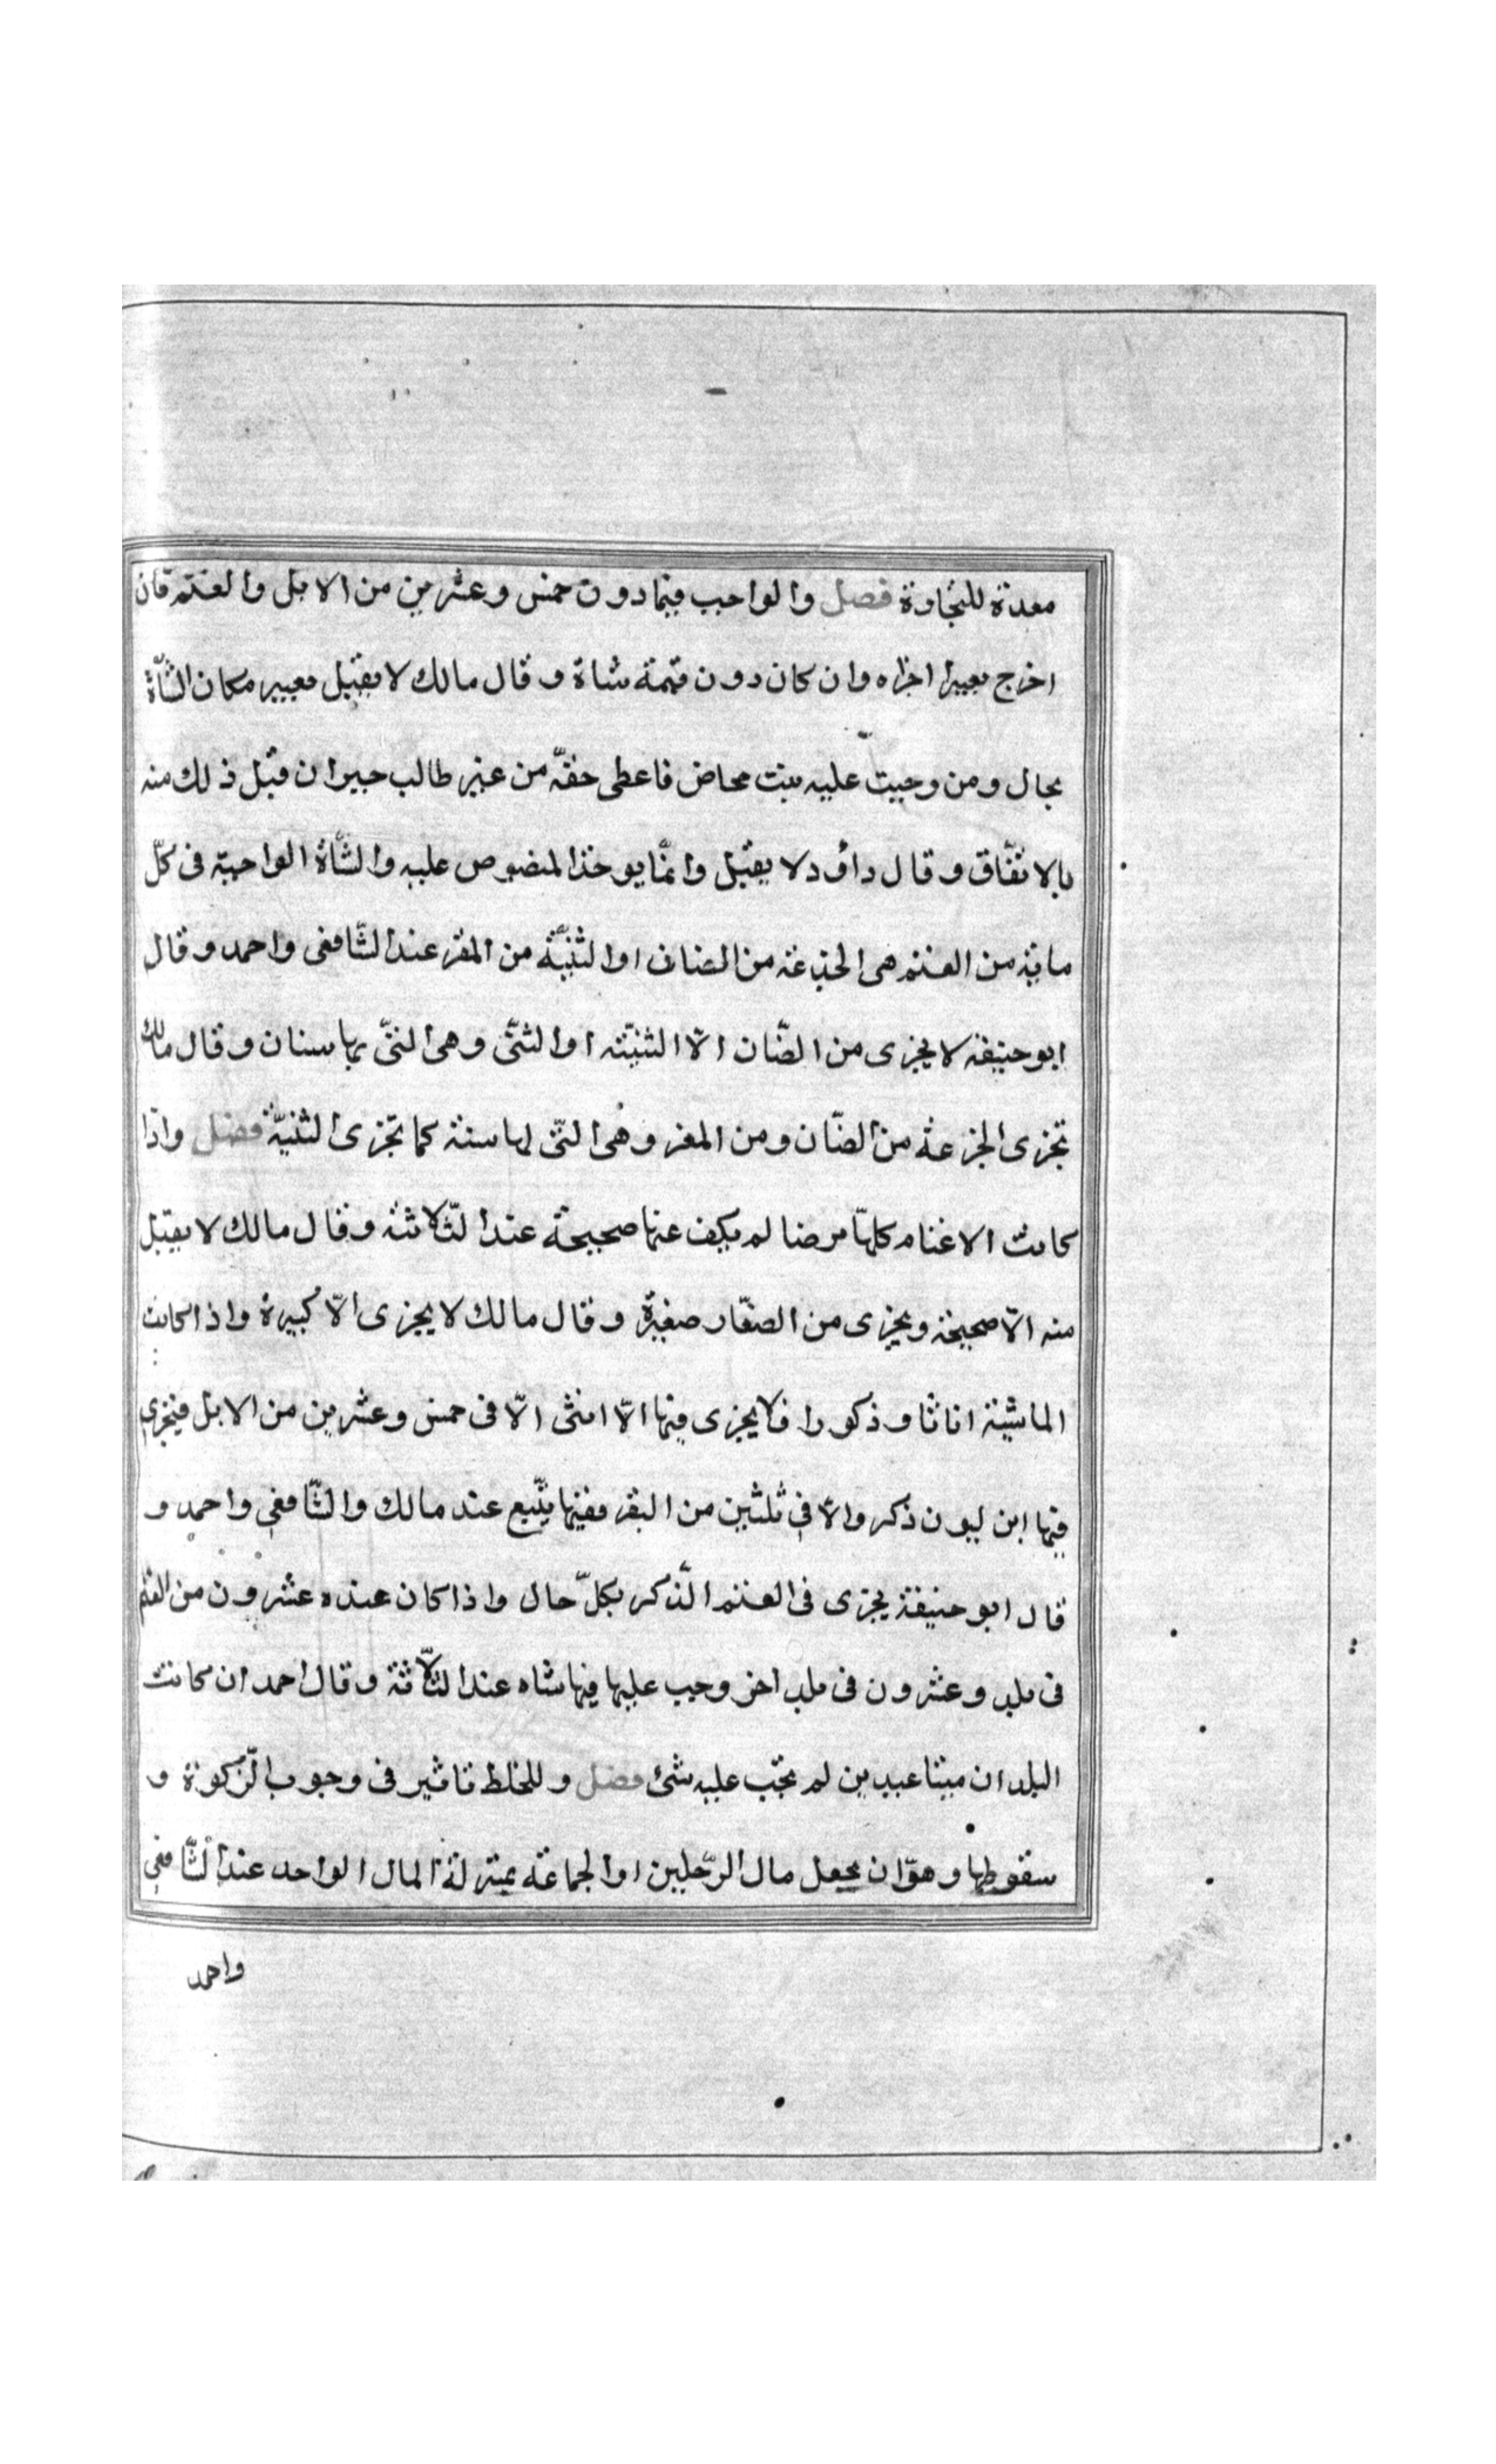 معدة للتجاوة فصل والواجب فيما دون خمس وعشرين من الابل والغنم فان
اخرج بعيرا اجزاه وان كان دون قيمة شاة وقال مالك لا يقبل بعير مكان الشّاة
بحال ومن وجبت عليه بنت محاض فاعطى حقّة من غير طالب جبران قبل ذلك منه
بالاتفّاق وقال داؤد لا يقبل وانمّا يوخذ المنصوص عليه والشّاة الواجبة فى كلّ
ماية من الغنم هى الجذعة من الضان او الثنيّة من المغز عند الشّافعى واحمد وقال
ابو حنيفة لا يجزى من الضّان الّا الثنيّته او الثنّى وهى النتّى بها سنتان وقال مالك
تجزى الجزعة من الضّان ومن المعز وهى التّى لها سنة كما تجزى الثنيّة فصل واذا
كانت الاغنام كلهّا مرضا لم يكف عنها صحيحة عند الثّلاثة وقال مالك لا يقبل
منه الّا صحيحة ويجزى من الصغّار صغيرة وقال مالك لا يجزى الّا كبيرة واذا كانت
الماشية اناثا وذكورا فلا يجزى فيها الّا انثى الّا فى خمس وعشرين من الابل فيجزى
فيها ابن لبون ذكر والّا فى ثلثين من البقر ففيها يتّبع عند مالك والشّافعى واحمد و
قال ابو حنيفة يجزى فى الغنم الّذكر بكلّ حال واذا كان عنده عشرون من الغنم
فى بلد وعشرون فى بلد اخر وجب عليها فيها شاه عند الثلّاثة وقال احمد ان كانت
البلدان ميتنا عبيدين لم تجب عليه شئ فصل وللخلط تاثير فى وجوب الزّكوة و
سقوطها وهوّ ان يجعل مال الرّجلين او الجماعة بمنزلة المال الواحد عند الشّافعى
واحمد